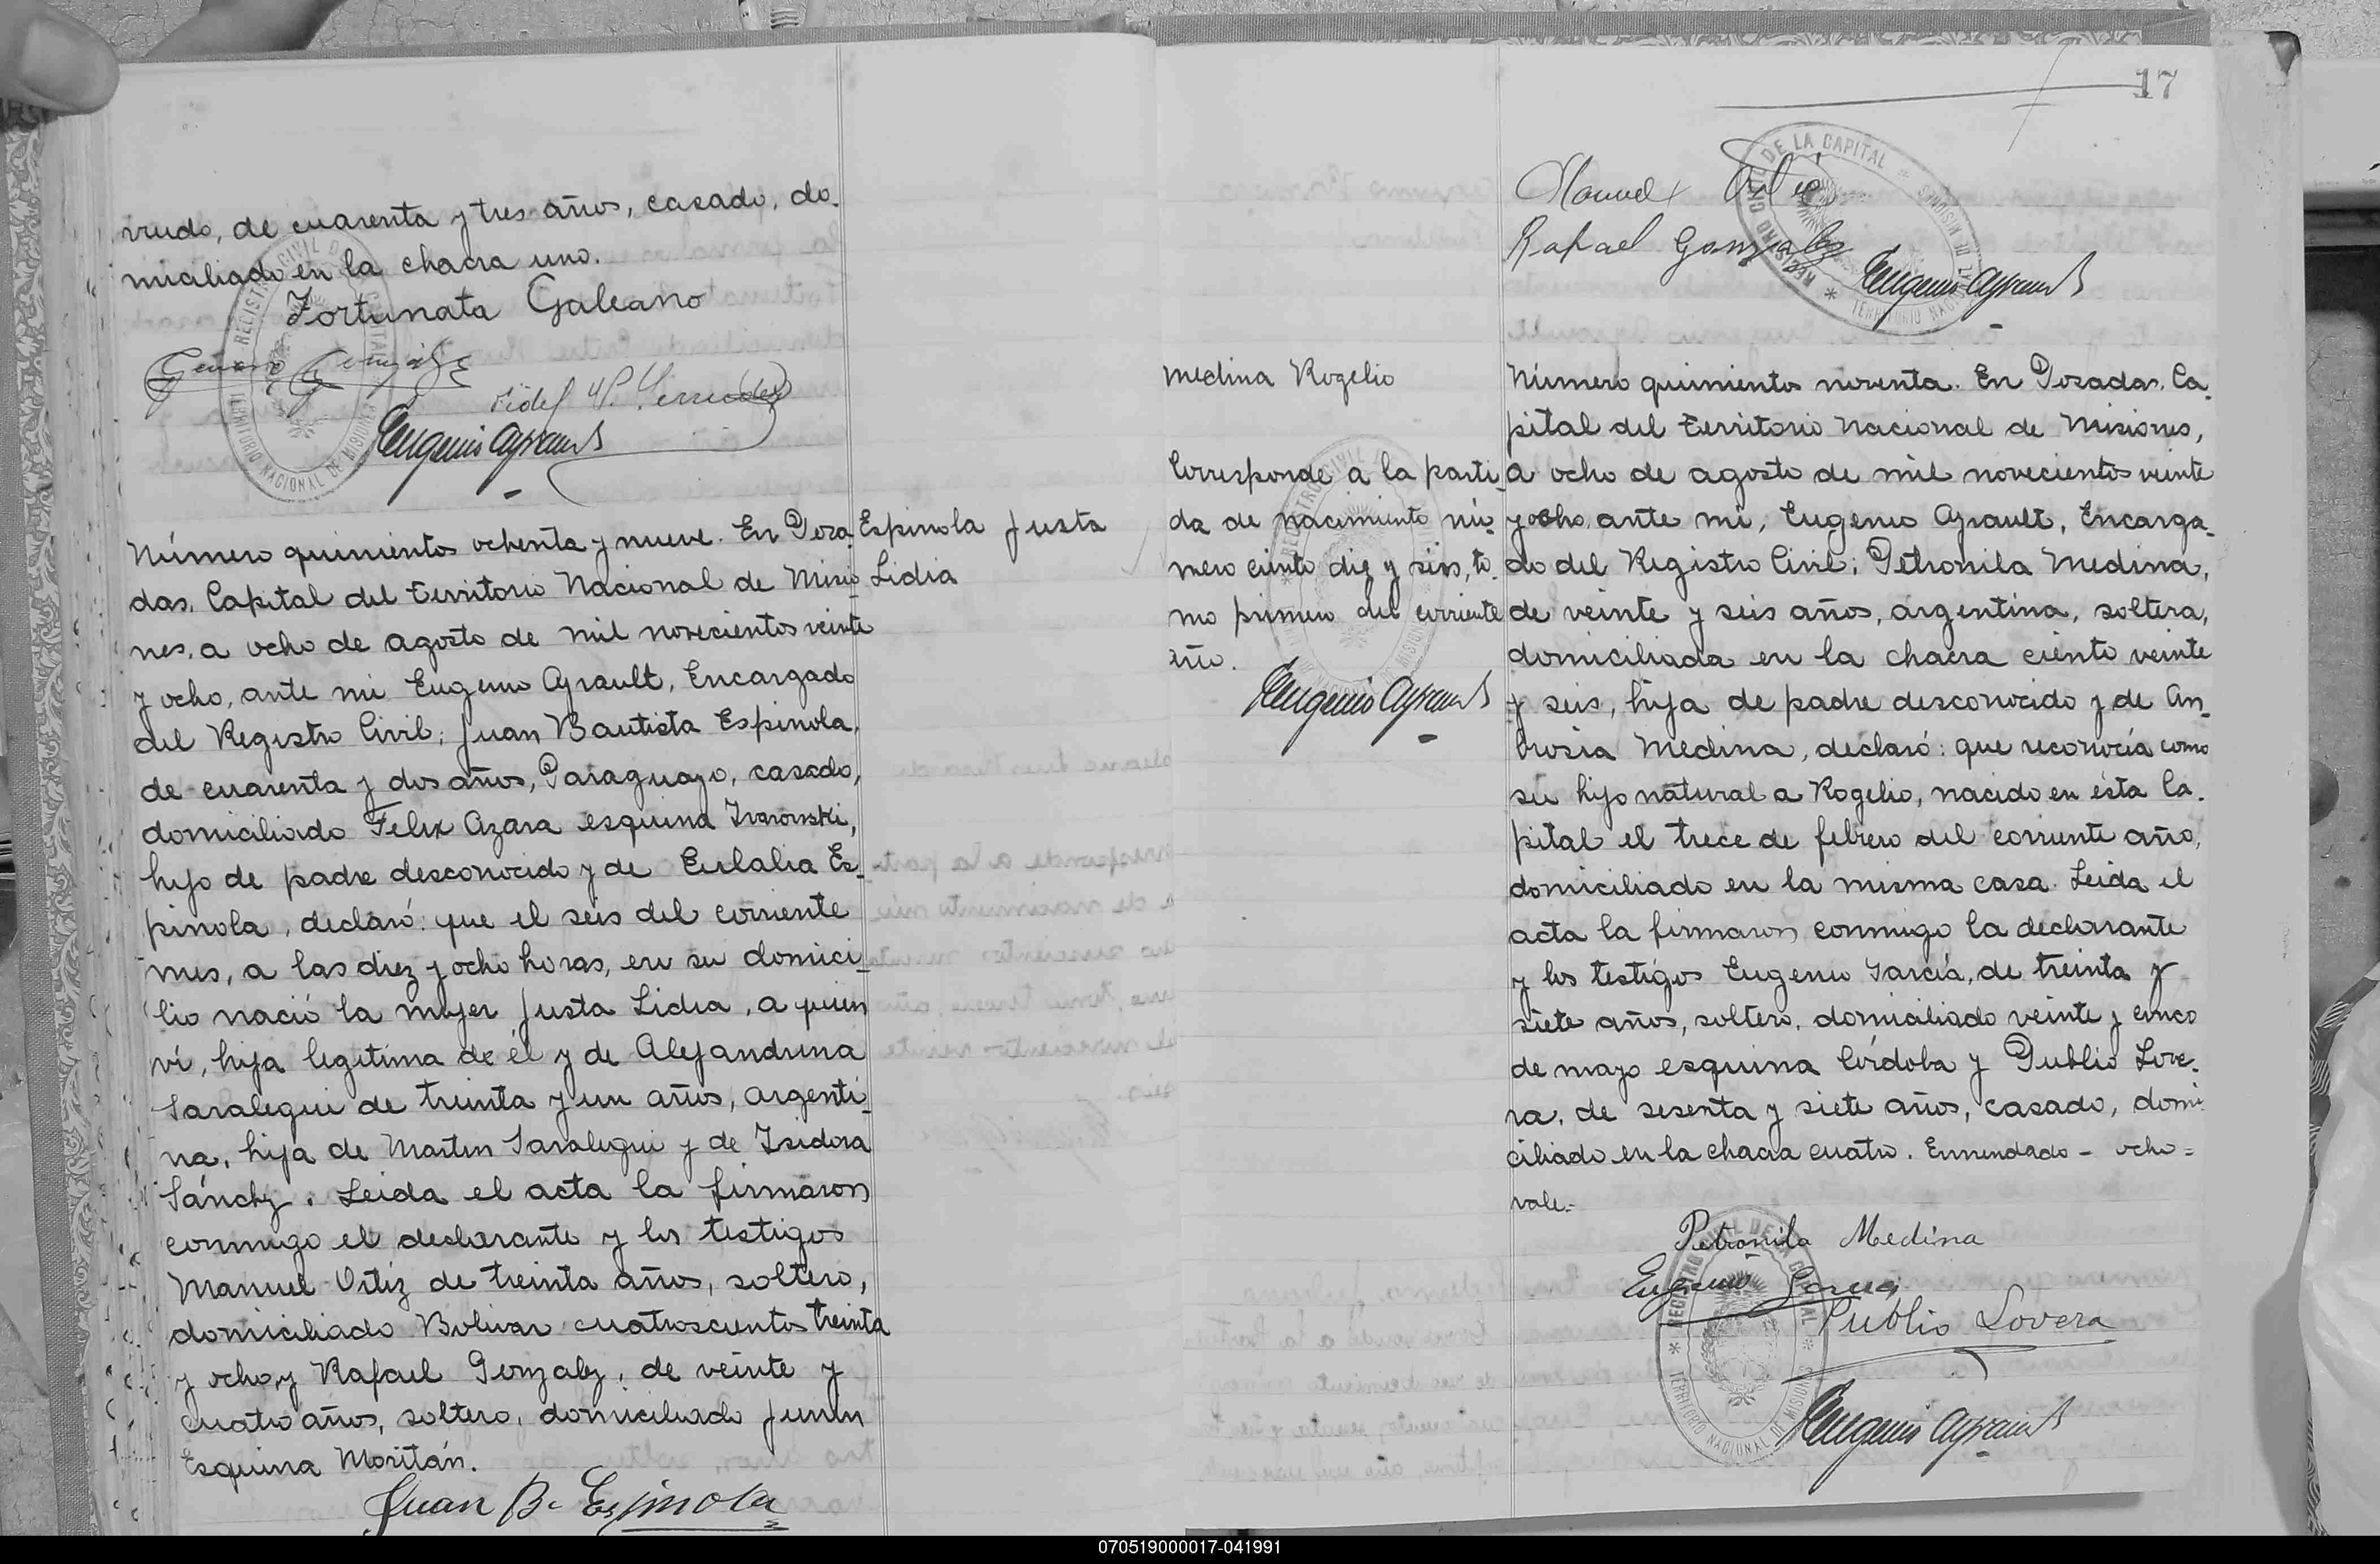 viudo, de cuarenta y tres años, casado, do-
miciliado en la chacra uno.
Fortunata Galeano
Eugenio Ayrault
Número quinientos ochenta y nueve. En Posa-
das, Capital del Territorio Nacional de Misio-
nes, a ocho de agosto de mil novecientos veinte
y ocho, ante mi Eugenio Ayrault, Encargado
del Registro Civil; Juan Bautista Espinola,
de cuarenta y dos años, Paraguayo, casado,
domiciliado Felix Azara esquina Ivarowski,
hijo de padre desconocido y de Eulalia Es-
pinola, declaró: que el seis del corriente
mes, a las diez y ocho horas, en su domici-
lio nació la mujer Justa Lidia, a quien
ví, hija legitima de él y de Alejandrina
Saralegui de treinta y un años, argenti-
na, hija de Martin Saralegui y de Isidora
Sánchz. Leida el acta la firmaron
conmigo el declarante y los testigos
Manuel Ortiz de treinta años, soltero,
domiciliado Bolivar cuatroscientos treinta
y ocho y Rafael Gonzalz, de veinte y
cuatro años, soltero, domiciliado Junin
Esquina Moritán.
Juan B. Espinola
Espinola Justa
Lidia
17
REGISTRO CIVIL DE LA CAPITAL
TERRITORIO NACIONAL DE MISIONES
Manuel Ortiz
Rafael Gonzalez
Eugenio Ayrault
Medina Rogelio
Corresponde a la parti-
da de nacimiento nú-
mero ciento diez y seis, to-
mo primero del corriente
año.
Eugenio Ayrault
Número quinientos noventa. En Posadas, Ca-
pital del Territorio Nacional de Misiones,
a ocho de agosto de mil novecientos veinte
y ocho, ante mi, Eugenio Ayrault, Encarga-
do del Registro Civil; Petronila Medina,
de veinte y seis años, argentina, soltera,
domiciliada en la chacra ciento veinte
y seis, hija de padre desconocido y de An-
brosia Medina, declaró: que reconocía como
su hijo natural a Rogelio, nacido en ésta Ca-
pital el trece de febrero del corriente año,
domiciliado en la misma casa. Leida el
acta la firmaron conmigo la declarante
y los testigos Eugenio García, de treinta y
siete años, soltero, domiciliado veinte y cinco
de mayo esquina Córdoba y Publio Love-
ra, de sesenta y siete años, casado, domi-
ciliado en la chacra cuatro. Enmendado - ocho =
vale.-
Petronila Medina
Eugenio Garcia
Publio Lovera
Eugenio Ayrault
070519000017-041991